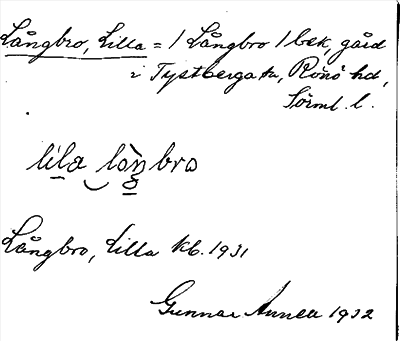 Långbro, Lilla = / Långbro / bek, gård
i Tystberga sn, Rönö hd,
Sörml. l.
lila låŋbro
Långbro, Lilla kb. 1931
Gunnar 1932